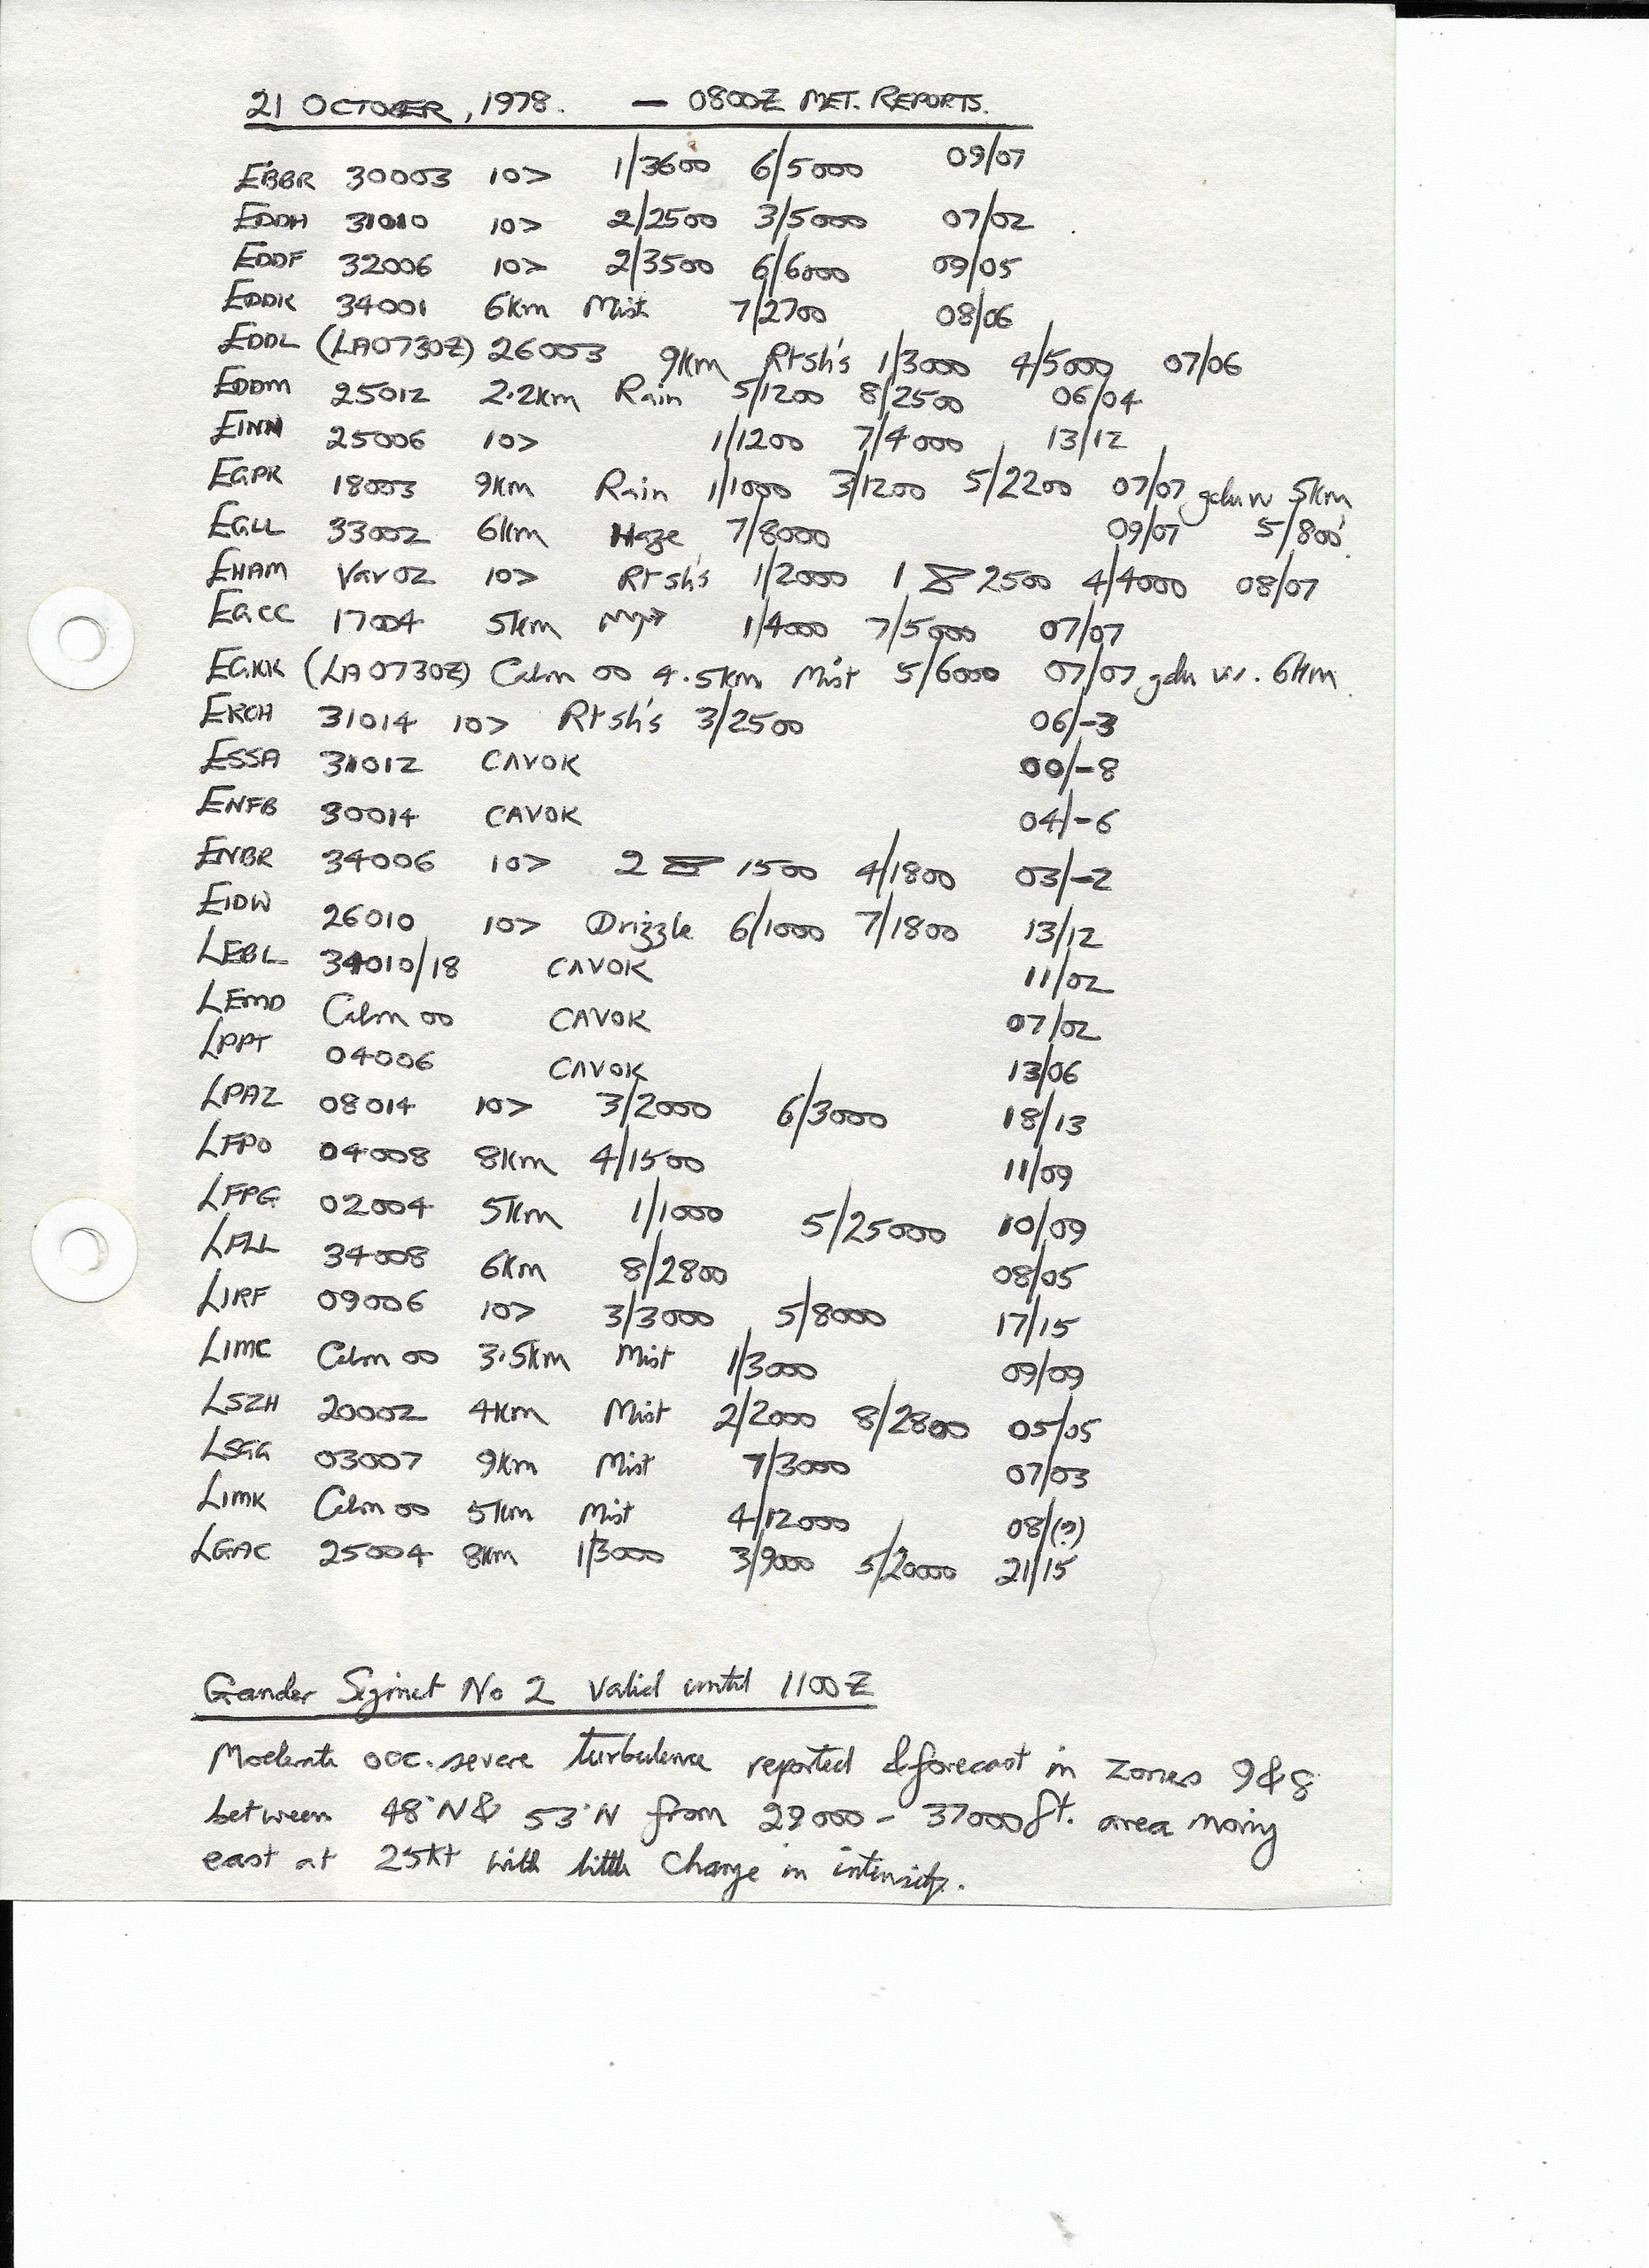 21 OCTOBER, 1978. — 0800Z MET. REPORTS.
EBBR 30003 10> 1/3600 6/5000 09/07
EDDH 31010 10> 2/2500 3/5000 07/02
EDDF 32006 10> 2/3500 6/6000 09/05
EDDK 34001 6km Mist 7/2700 08/06
EDDL (LA0730Z) 26003 9km Rtsh's 1/3000 4/5000 07/06
EDDM 25012 2.2km Rain 5/1200 8/2500 06/04
EINN 25006 10> 1/1200 7/4000 13/12
EGPK 18003 9km Rain 1/1000 3/1200 5/2200 07/07 gdu vv 5km
EGLL 33002 6km Haze 7/8000 09/07 5/800'
EHAM Var02 10> Rtsh's 1/2000 1 2500 4/4000 08/07
EGCC 17004 5km 1/4000 7/5000 07/07
EGKK (LA0730Z) Calm 00 4.5km Mist 5/6000 07/07 gdu vv. 6km
EKCH 31014 10> Rtsh's 3/2500 06/-3
ESSA 31012 CAVOK 00/-8
ENFB 30014 CAVOK 04/-6
ENBR 34006 10> 2 1500 4/1800 03/-2
EIDW 26010 10> Drizzle 6/1000 7/1800 13/12
LEBL 34010/18 CAVOK 11/02
LEMD Calm 00 CAVOK 07/02
LPPT 04006 CAVOK 13/06
LPAZ 08014 10> 3/2000 6/3000 18/13
LFPO 04008 8km 4/1500 11/09
LFPG 02004 5km 1/1000 5/25000 10/09
LFLL 34008 6km 8/2800 08/05
LIRF 09006 10> 3/3000 5/8000 17/15
LIMC Calm 00 3.5km Mist 1/3000 09/09
LSZH 20002 4km Mist 2/2000 8/2800 05/05
LSGG 03007 9km Mist 7/3000 07/03
LIMK Calm 00 5km Mist 4/12000 08/(?)
LGAC 25004 8km 1/3000 3/9000 5/20000 21/15
Gander Sigmet No 2 Valid until 1100Z
Moderate occ. severe turbulence reported & forecast in zones 9&8
between 48°N & 53°N from 29000 - 37000ft. area moving
east at 25kt with little change in intensity.